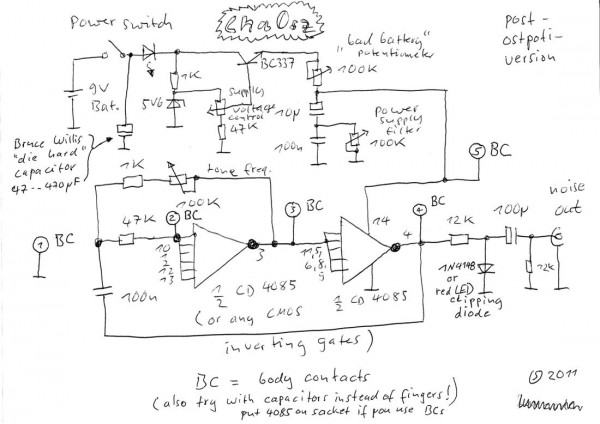 Power switch
CHaoOsz
post-
ostpoti-
version
9V
Bat.
1K
5V6
BC337
supply
voltage
control
47K
"bad battery"
potentiometer
100K
10µ
100n
Power
supply
filter
100K
Bruce Willis
"die hard"
capacitor
47...470µF
1K
tone freq.
100K
1 BC
47K
2 BC
10
1
2
12
13
3
3 BC
11,5,
6,8,
9
14
4
4 BC
5 BC
100n
1/2 CD 4085
(or any CMOS
inverting gates)
1/2 CD 4085
12K
1N4148
or
red LED
clipping
diode
100µ
12K
noise
out
BC = body contacts
(also try with capacitors instead of fingers!)
put 4085 on socket if you use BCs
2011